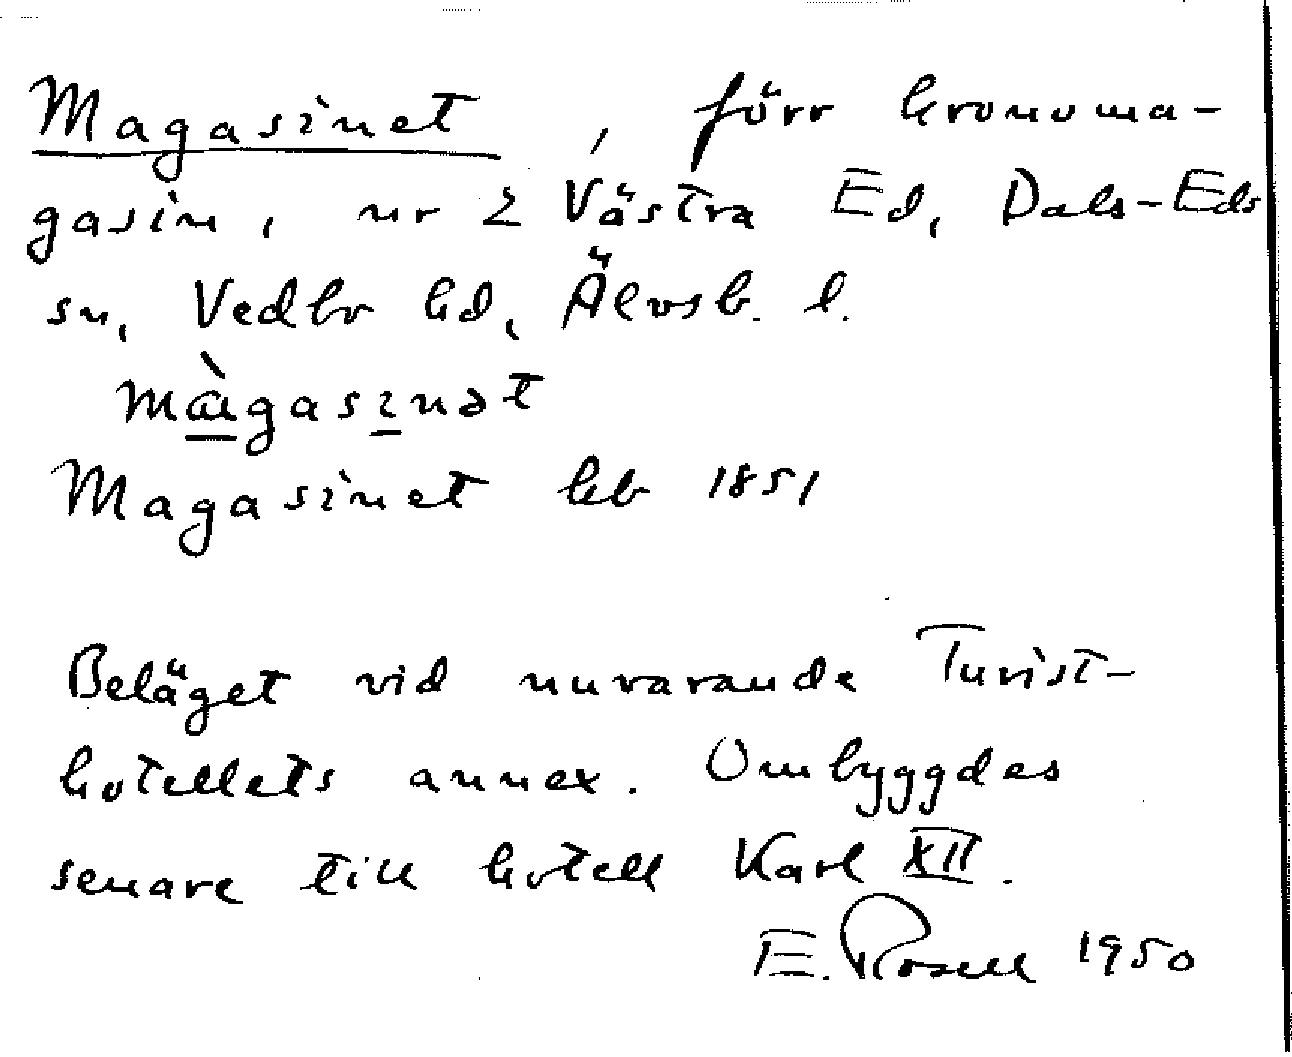 Magasinet, förr kronoma-
gasin, nr 2 Västra Ed, Dals-Eds
sn, Vedbo hd, Älvsb. l.
màgasınət
Magasinet hb 1851
Beläget vid nuvarande Turist-
hotellets annex. Ombyggdes
senare till hotell Karl XII.
E. Rosell 1950